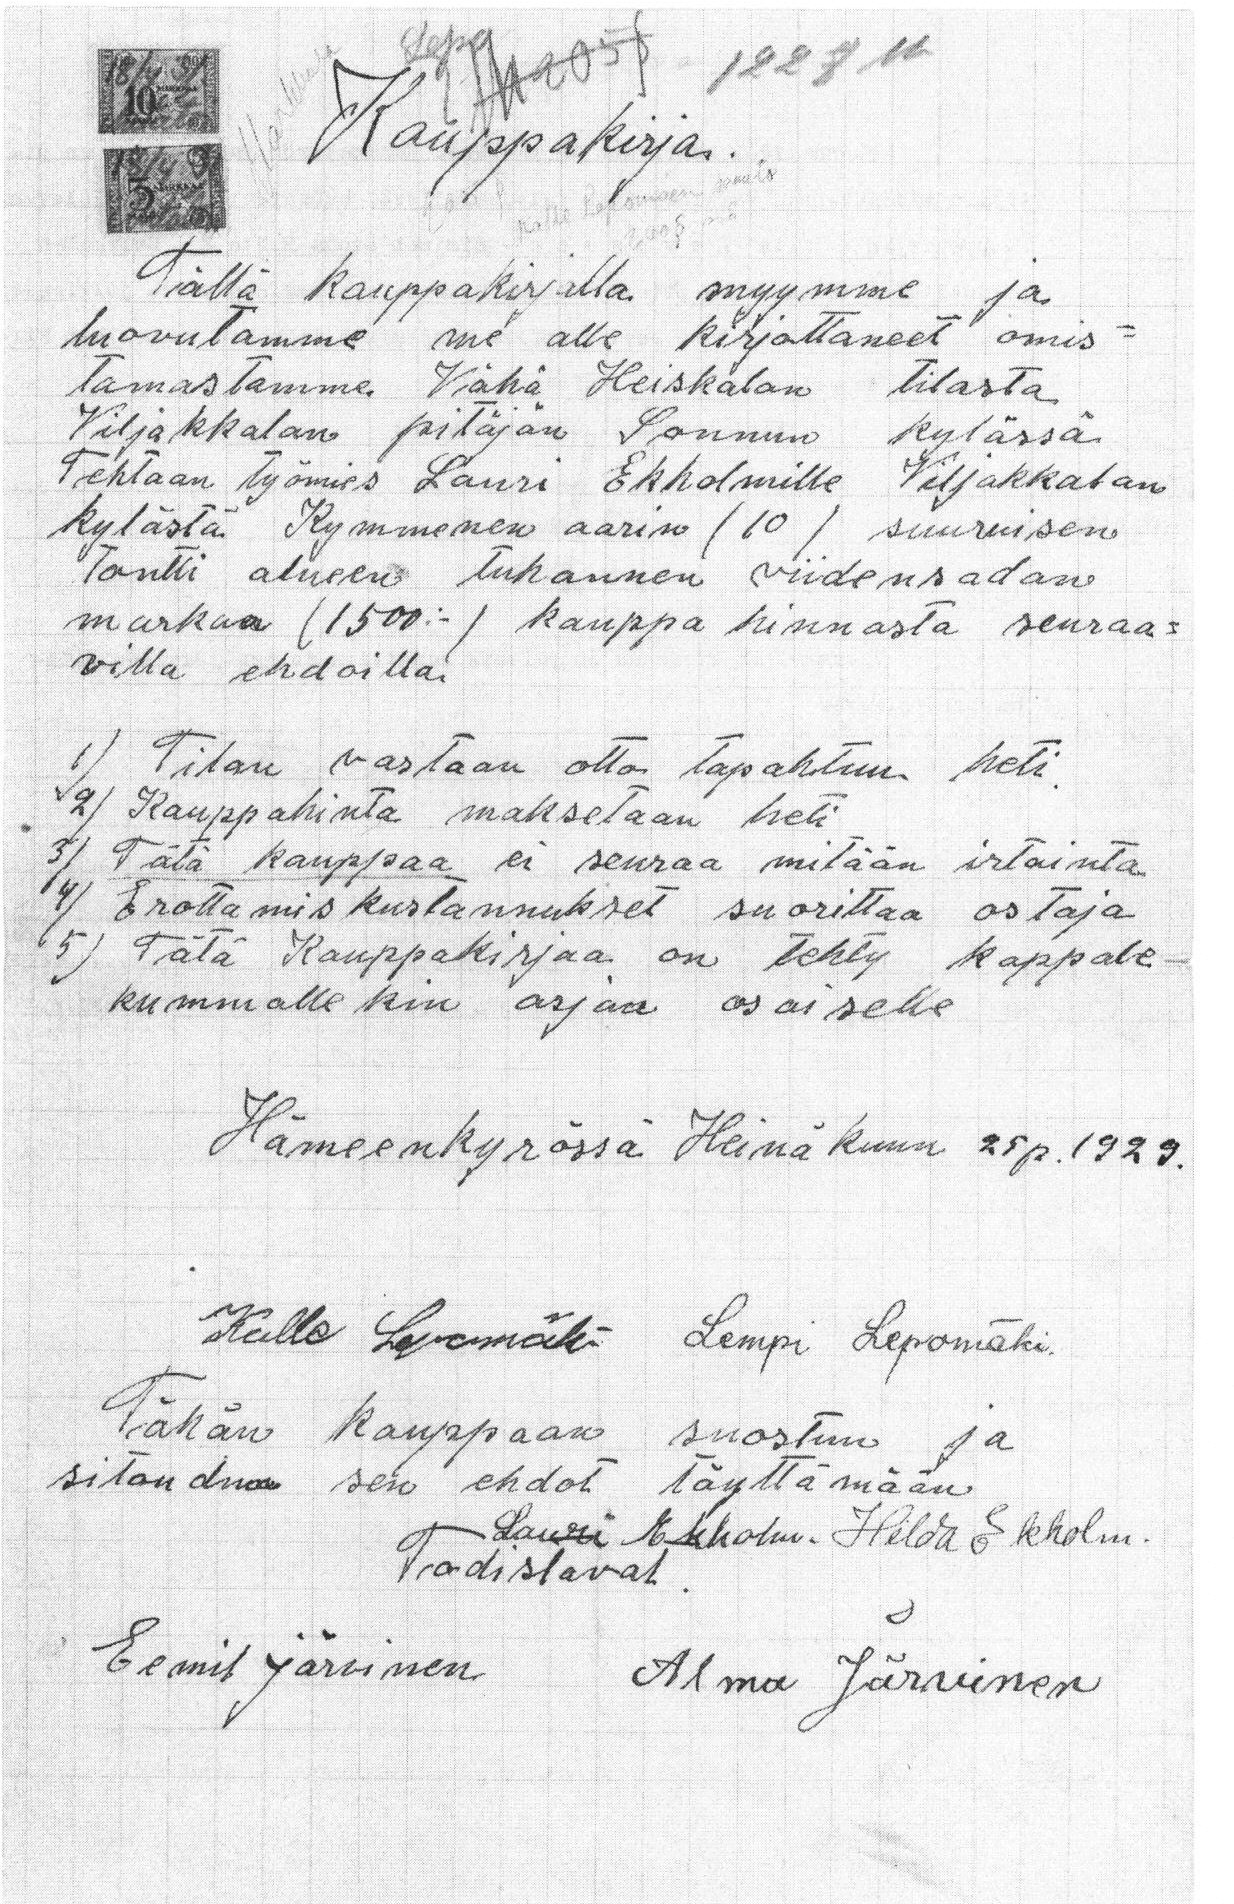 Lepo
1228 M
Kauppakirja.
10
5
Tällä kauppakirjalla myymme ja
luovutamme me alle kirjottaneet omis=
tamastamme Vähä Heiskalan tilasta
Viljakkalan pitäjän Sonnun kylässä
Tehtaan työmies Lauri Ekholmille Viljakkalan
kylästä Kymmenen aarin (10) suuruisen
Tontti alueen tuhannen viidensadan
markan (1500:-) kauppa hinnasta seuraa=
villa ehdoilla
1) Tilan vastaan otto tapahtuu heti.
2) Kauppahinta maksetaan heti
3) Tätä kauppaa ei seuraa mitään irtainta
4) Erottamiskustannukset suorittaa ostaja
5) Tätä Kauppakirjaa on tehty kappale-
kummalle kin asjan osaiselle
Hämeenkyrössä Heinäkuun 25 p. 1929.
Kalle Lepomäki Lempi Lepomäki.
Tähän kauppaan suostun ja
sitoudun sen ehdot täyttämään
Lauri Ekholm. Hilda Ekholm.
Todistavat.
Eemil Järvinen Alma Järvinen